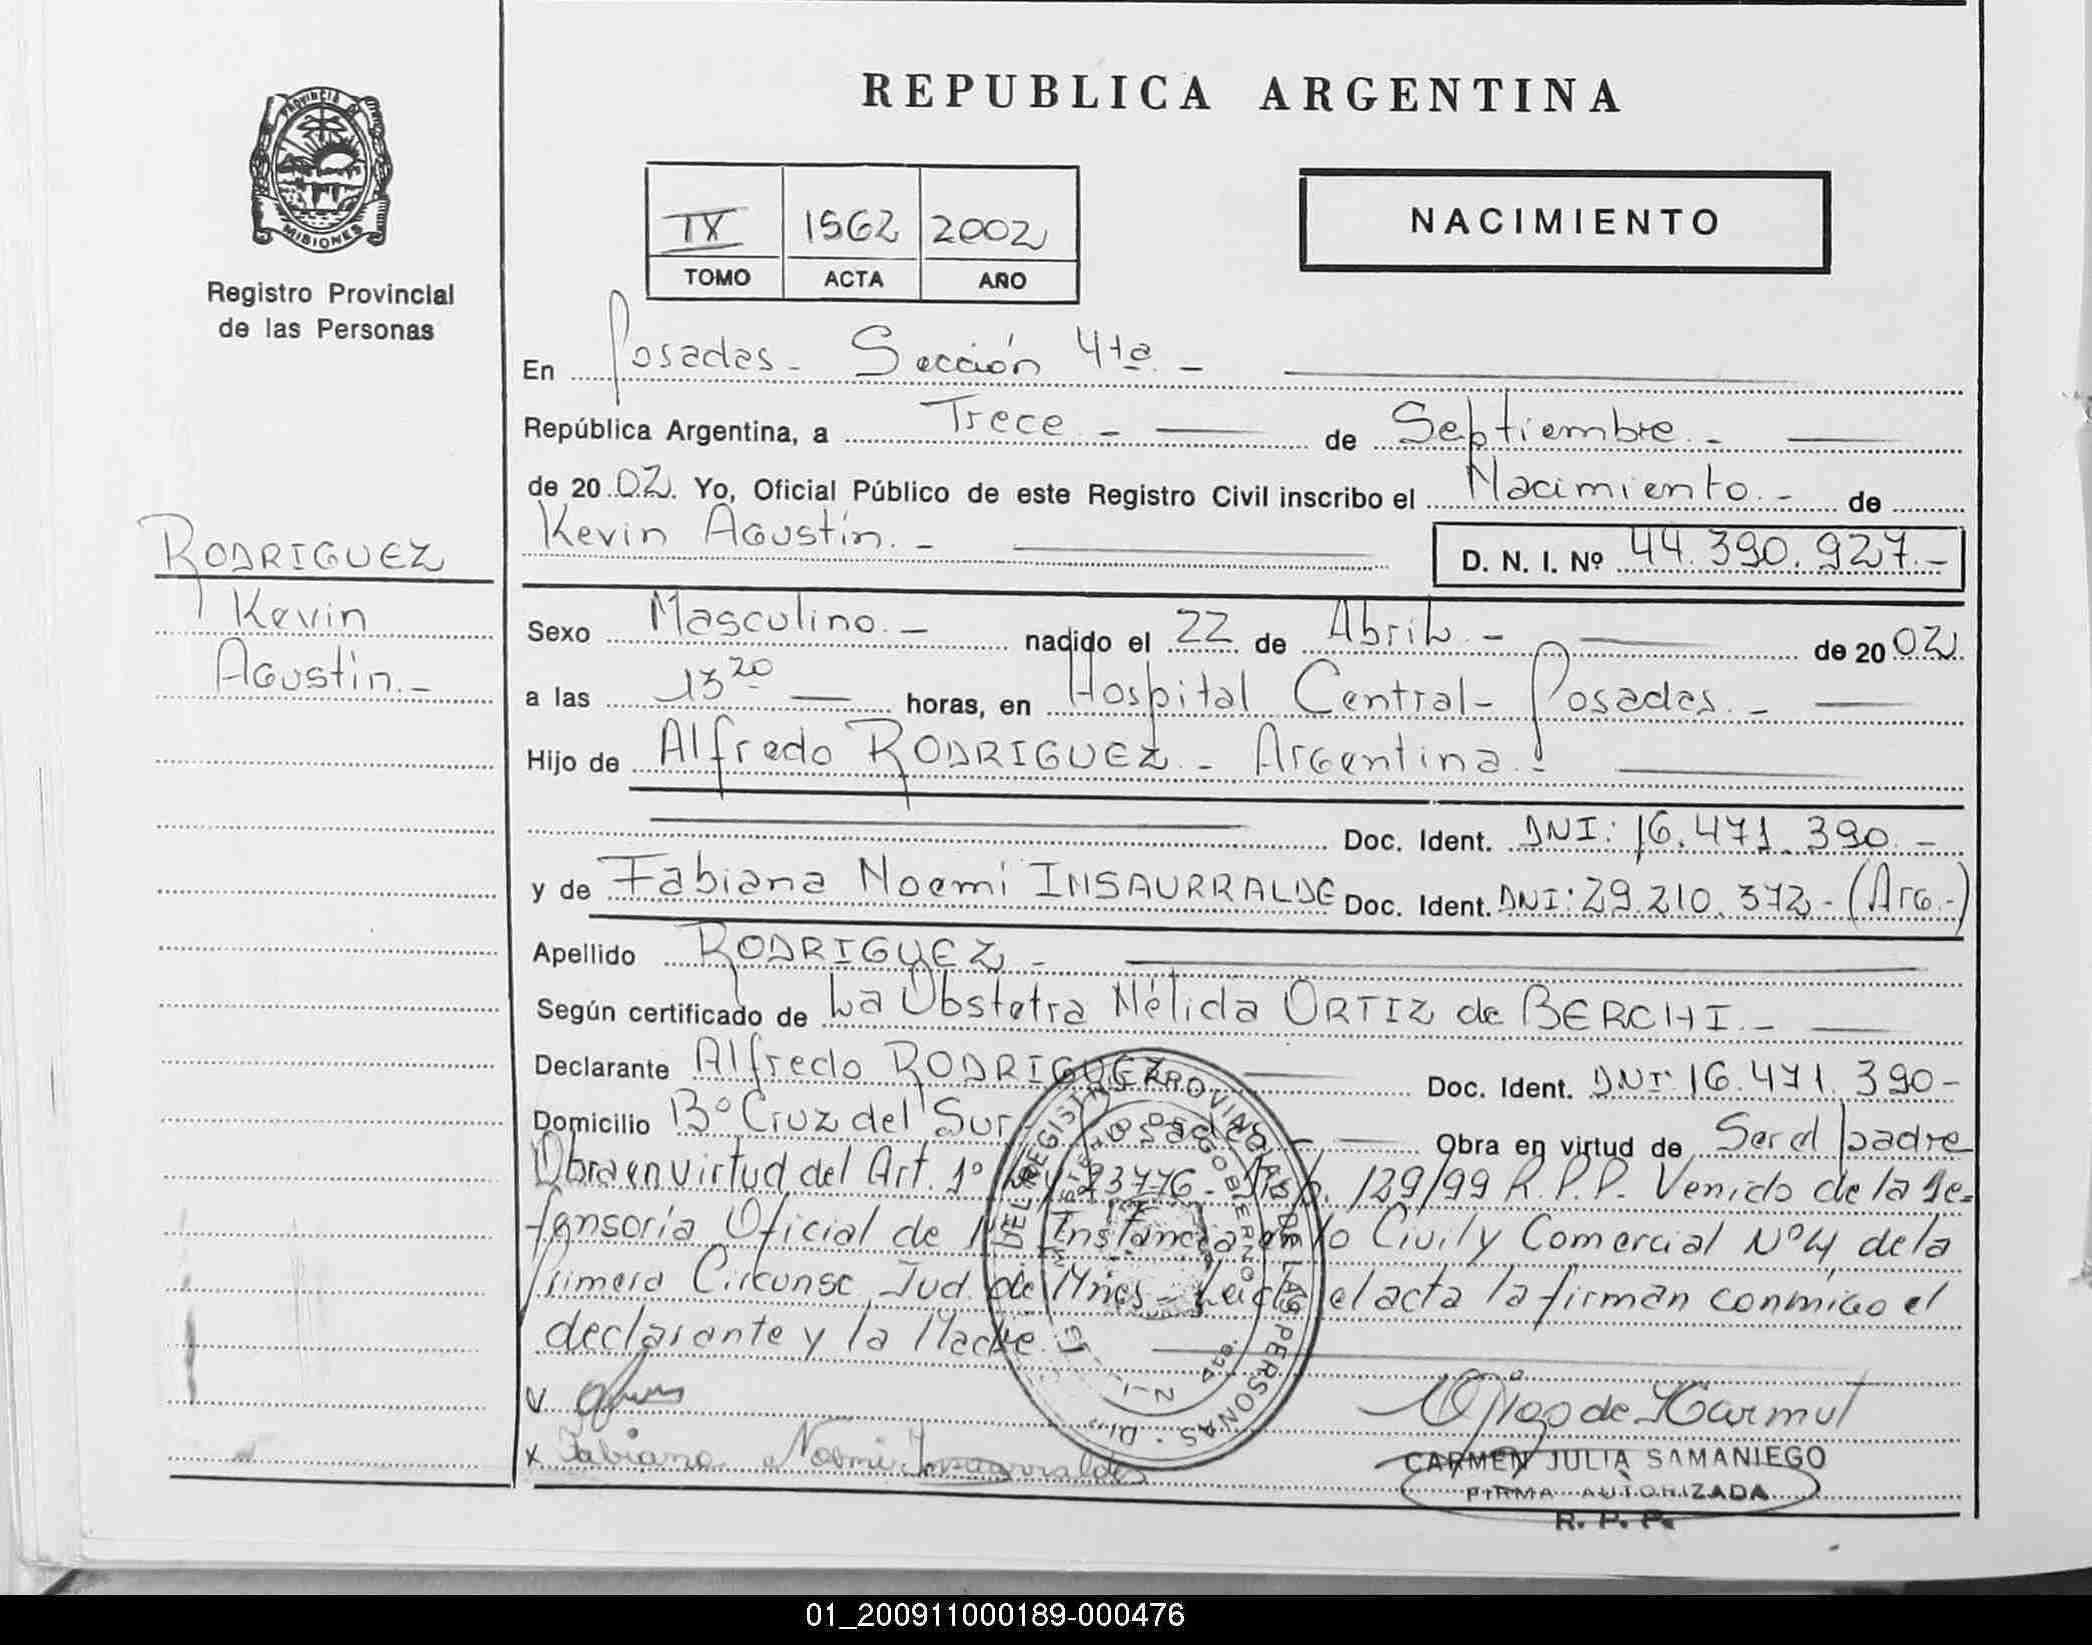 REPUBLICA ARGENTINA
PROVINCIA DE
MISIONES
Registro Provincial
de las Personas
IX 1562 2002
TOMO ACTA AÑO
NACIMIENTO
En Posadas - Sección 4ta. -
República Argentina, a Trece - de Septiembre. -
de 2002. Yo, Oficial Público de este Registro Civil inscribo el Nacimiento. - de
Kevin Agustín. -
D. N. I. Nº 44.390.927.-
RODRIGUEZ
Kevin
Agustín. -
Sexo Masculino. - nacido el 22 de Abril. - de 2002.
a las 13 20 horas, en Hospital Central - Posadas. -
Hijo de Alfredo RODRIGUEZ. - Argentina. -
Doc. Ident. DNI: 16.471.390. -
y de Fabiana Noemi INSAURRALDE Doc. Ident. DNI: 29.210.372 - (Arg.-)
Apellido RODRIGUEZ -
Según certificado de La Obstetra Nélida ORTIZ de BERCHI. -
Declarante Alfredo RODRIGUEZ Doc. Ident. DNI 16.471.390-
Domicilio Bº Cruz del Sur Posadas - Obra en virtud de Ser el padre
Obra en virtud del Art. 1º Ley 23776 - Disp. 129/99 R.P.P. Venido de la De-
fensoría Oficial de Instancia en lo Civil y Comercial Nº4 de la
Primera Circunsc. Jud. de Mnes - Leida el acta la firman conmigo el
declarante y la Madre.
DEL REGISTRO PROVINCIAL DE LAS PERSONAS
MINISTERIO DE GOBIERNO
V
X Fabiana Noemi Insaurralde
CARMEN JULIA SAMANIEGO
FIRMA AUTORIZADA
R. P. P.
01_200911000189-000476